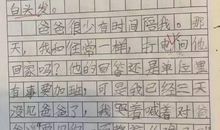 白头发。
爸爸很少有时间陪我。那
天,我和往常一样,打电问他
回家吗?他的回答还是单位里
有事要加班,可是我已经三天
没见爸爸了!我哭着喊着对爸